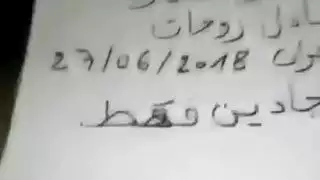 روحات
27/06/2018
جادين فقط